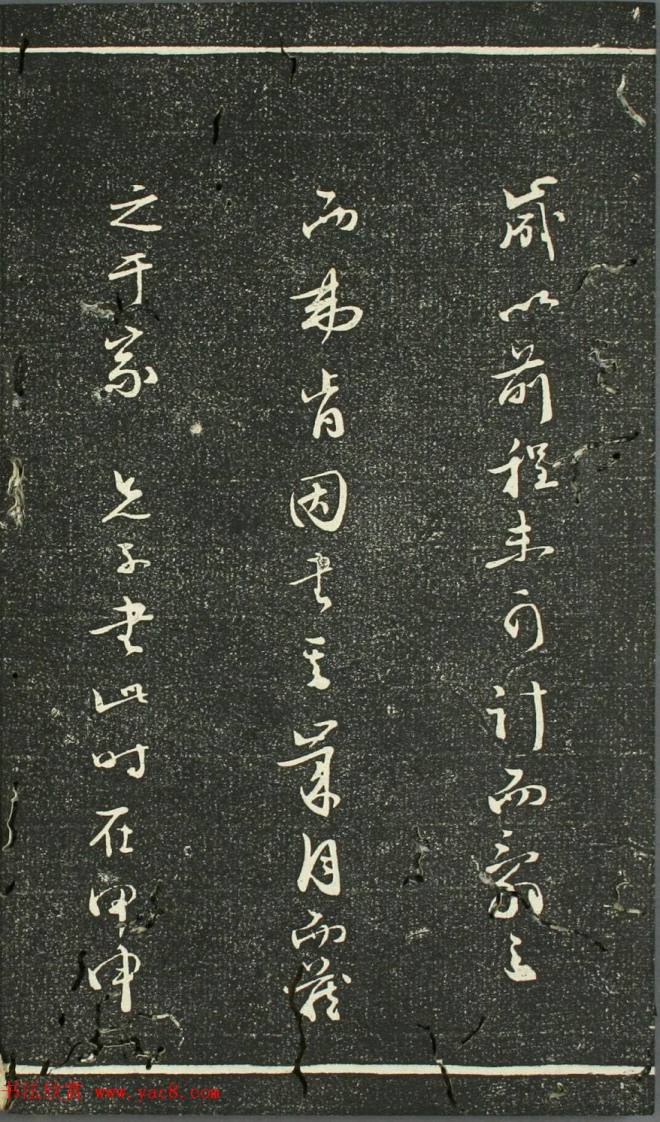 歲以前程未可計而
而弗肯因書其月而藏
之于家 書此時在甲申
书法欣赏 www.yac8.com